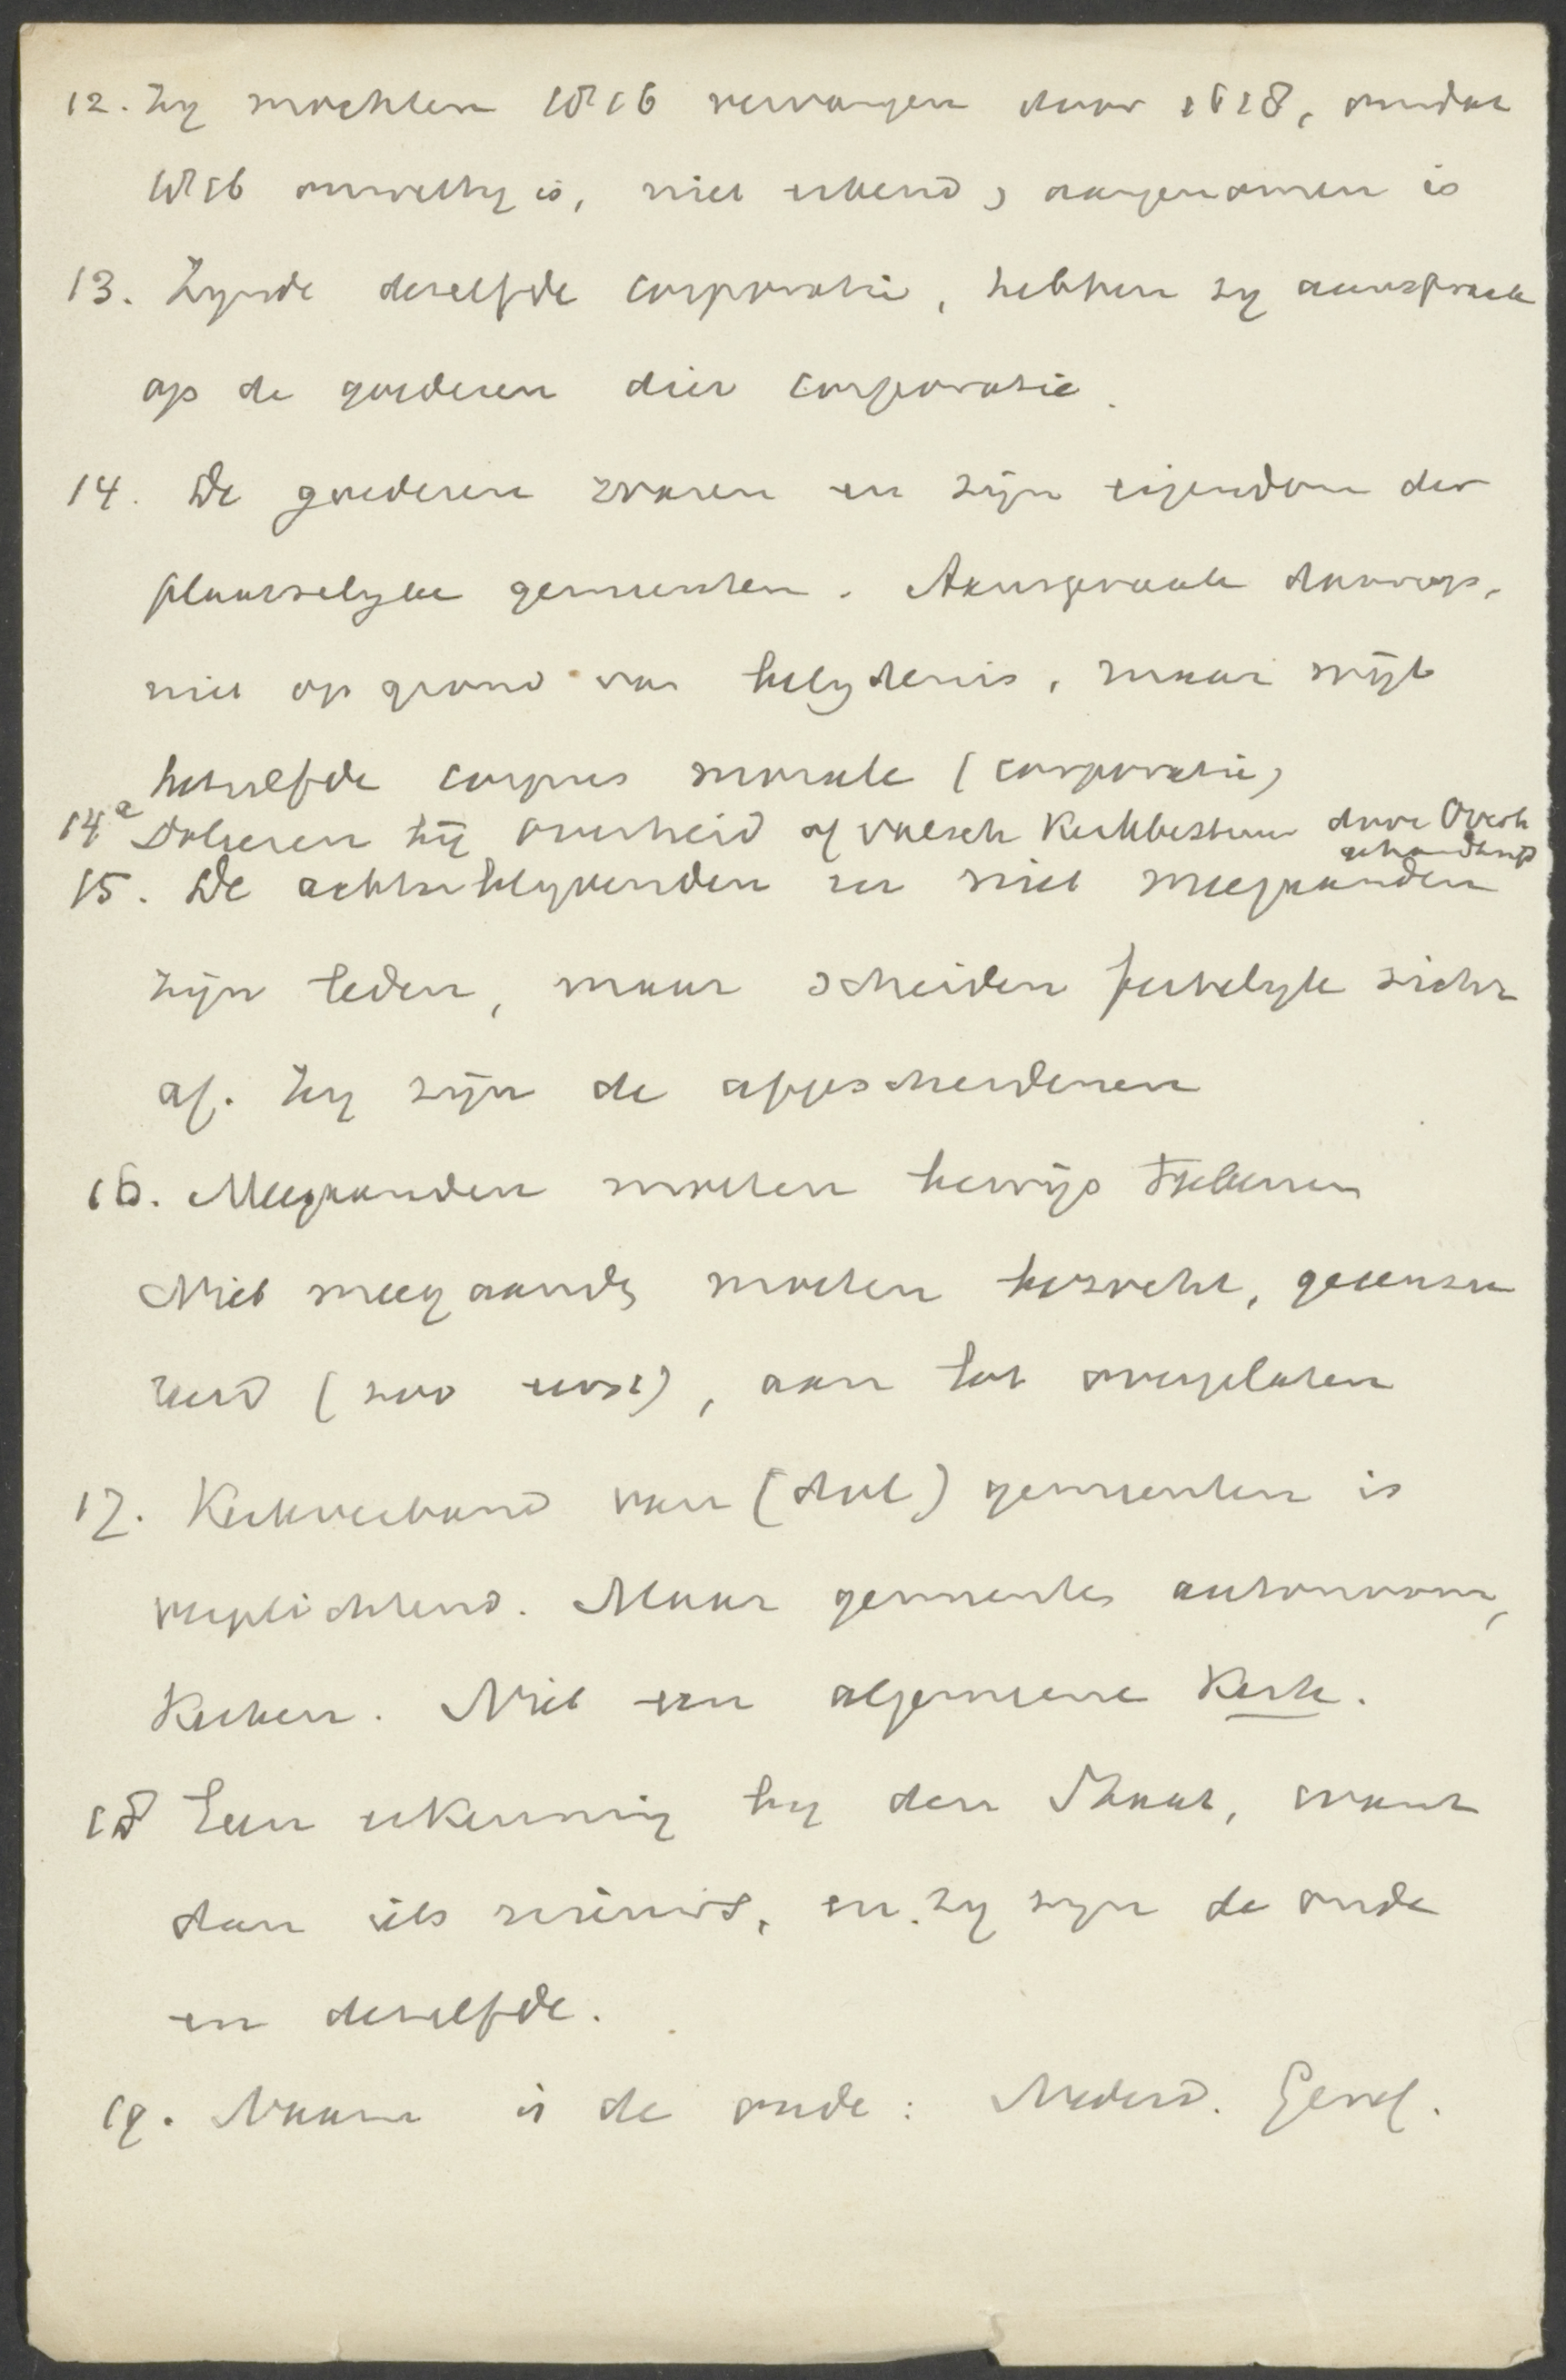 12. Zy mochten 1816 vervangen door 1618, omdat
1816 onwettig is, niet erkend, aangenomen is
13. Zynde dezelfde corporatie, hebben zy aanspraak
op de goederen dier corporatie.
14. De goederen waren en zijn eigendom der
plaatselyke gemeenten. Aanspraak daarop,
niet op grond van belydenis, maar wijl
hetzelfde corpus morale (corporatie)
14a Doleren bij overheid of valsch Kerkbestuur door Overh
gehandhafd
15. De achterblyvenden en niet meegaanden
zijn leden, maar scheiden feitelyk zich
af. Zy zijn de afgescheidenen
16. Meegaanden moeten bewijs
Niet meegaande moeten bezocht, gecensu
reerd (zoo eerst), aan lot overgelaten
17. Kerkverband van (dol) gemeenten is
verplichtend. Maar gemeentes autonoom,
Kerken. Niet een algemeene Kerk.
18 Geen erkenning by den Staat, want
dan iets nieuws, en zy zyn de oude
en dezelfde.
19. Naam is de oude: Nederd. Geref.